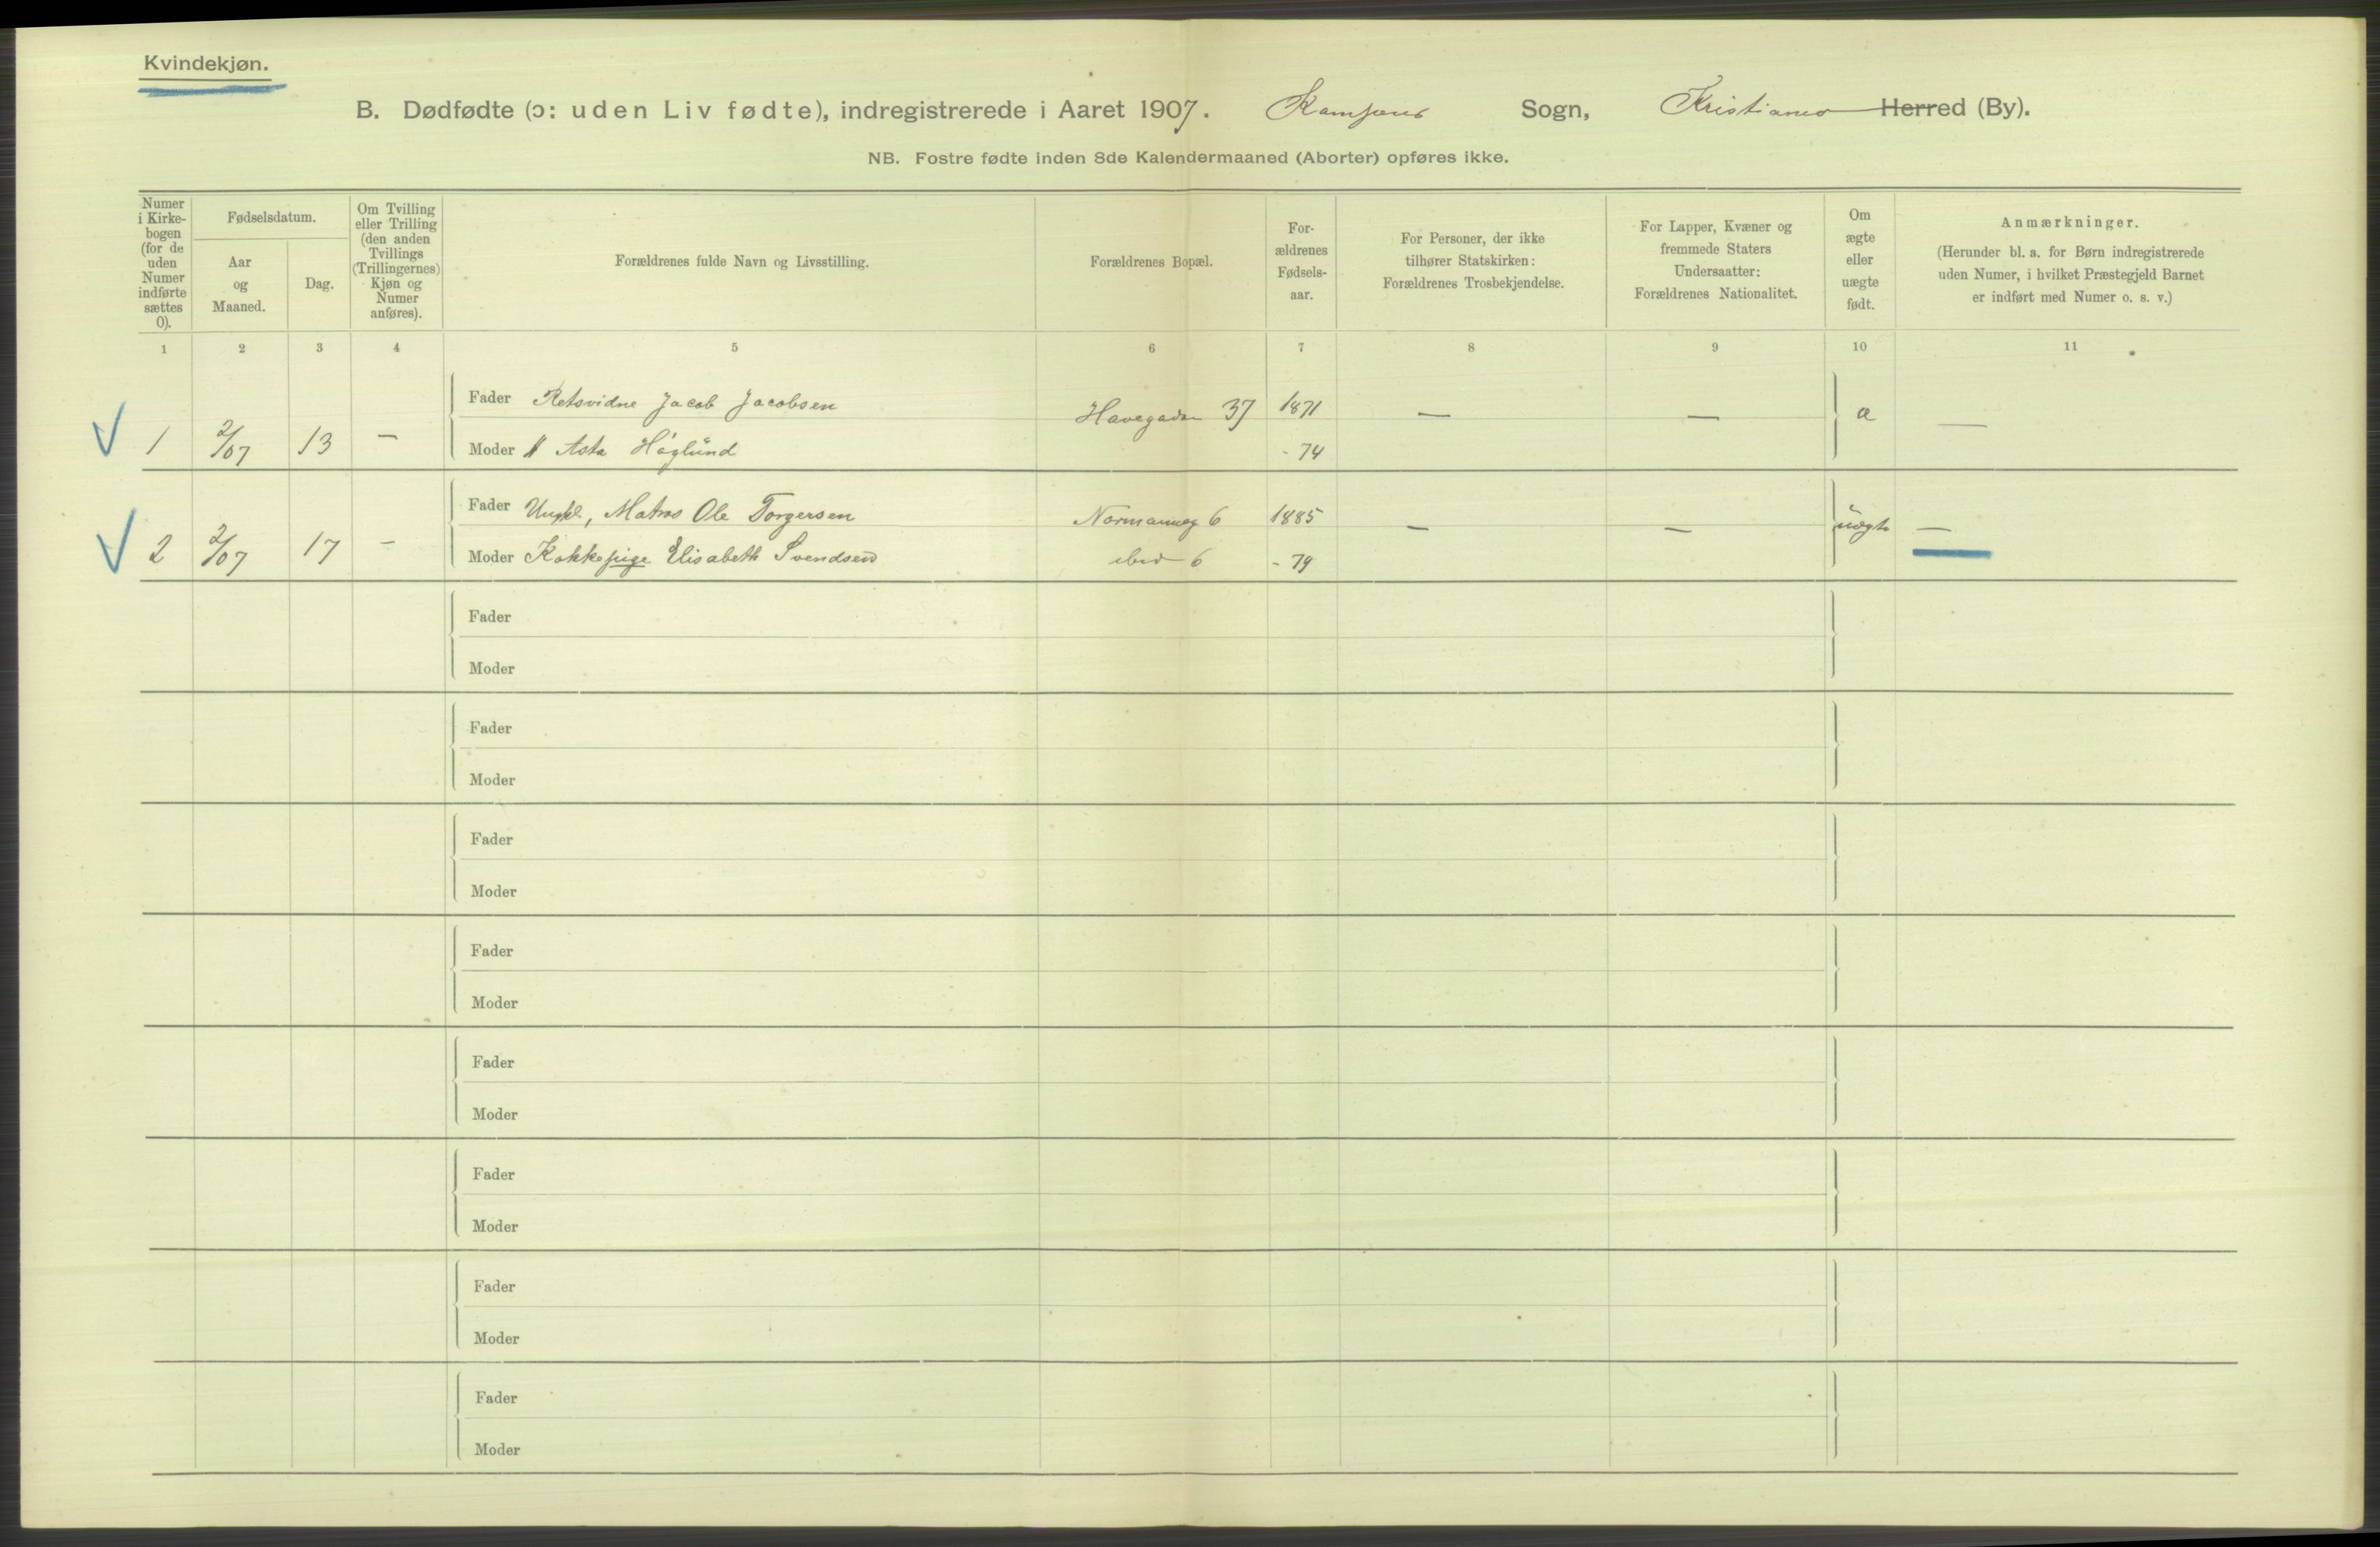 Kvindekjøn.
B. Dødfødte (ɔ: uden Liv fødte), indregistrerede i Aaret 1907. Kampens Sogn, Kristiania Herred (By).
NB. Fostre fødte inden 8de Kalendermaaned (Aborter) opføres ikke.
Numer i Kirkebogen (for de uden Numer indførte sættes 0).
Fødselsdatum.
Aar og Maaned.
Dag.
Om Tvilling eller Trilling (den anden Tvillings (Trillingernes) Kjøn og Numer anføres).
Forældrenes fulde Navn og Livsstilling.
Forældrenes Bopæl.
Forældrenes Fødselsaar.
For Personer, der ikke tilhører Statskirken: Forældrenes Trosbekjendelse.
For Lapper, Kvæner og fremmede Staters Undersaatter: Forældrenes Nationalitet.
Om ægte eller uægte født.
Anmærkninger.
(Herunder bl. a. for Børn indregistrerede uden Numer, i hvilket Præstegjeld Barnet er indført med Numer o. s. v.)
1 2 3 4 5 6 7 8 9 10 11
Fader Retsvidne Jacob Jacobsen Havegaden 37 1871 — — a —
1 2/07 13 — Moder Asta Höglund - 74
Fader Ungk., Matros Ole Torgersen Normanneg 6 1885 — — uægte —
2 2/07 17 — Moder Kokkepige Elisabeth Svendsen ibid 6 - 79
Fader
Moder
Fader
Moder
Fader
Moder
Fader
Moder
Fader
Moder
Fader
Moder
Fader
Moder
Fader
Moder